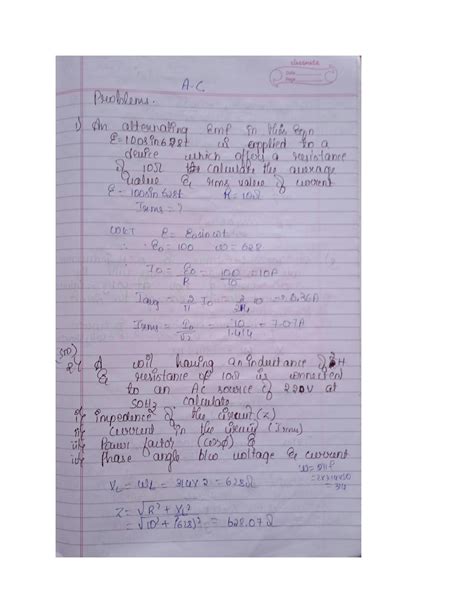 classmate
Date
Page
A.C
Problems.
1) An alternating Emf in this Eqn
E=100sin628t is applied to a
device which offers a resistance
of 10Ω calculate the average
value & rms value of current
E = 100sin628t R = 10Ω
Irms = ?
WKT E = E0sinωt
∴ E0 = 100 ω = 628
I0 = E0/R = 100/10 = 10A
Iavg = 2/π I0
Irms = I0/√2 = 10/1.414 = 7.07A
2) A coil having an inductance of 2H
& resistance of 10Ω is connected
to an AC source of 220V at
50Hz calculate
i) impedence of the circuit (Z)
ii) current in the circuit (Irms)
iii) Power factor (cosϕ) &
iv) Phase angle b/w voltage & current
ω = 2πf
= 2x3.14x50
= 314
XL = ωL = 314x2 = 628Ω
Z = √R² + XL²
= √10² + (628)² = 628.07Ω